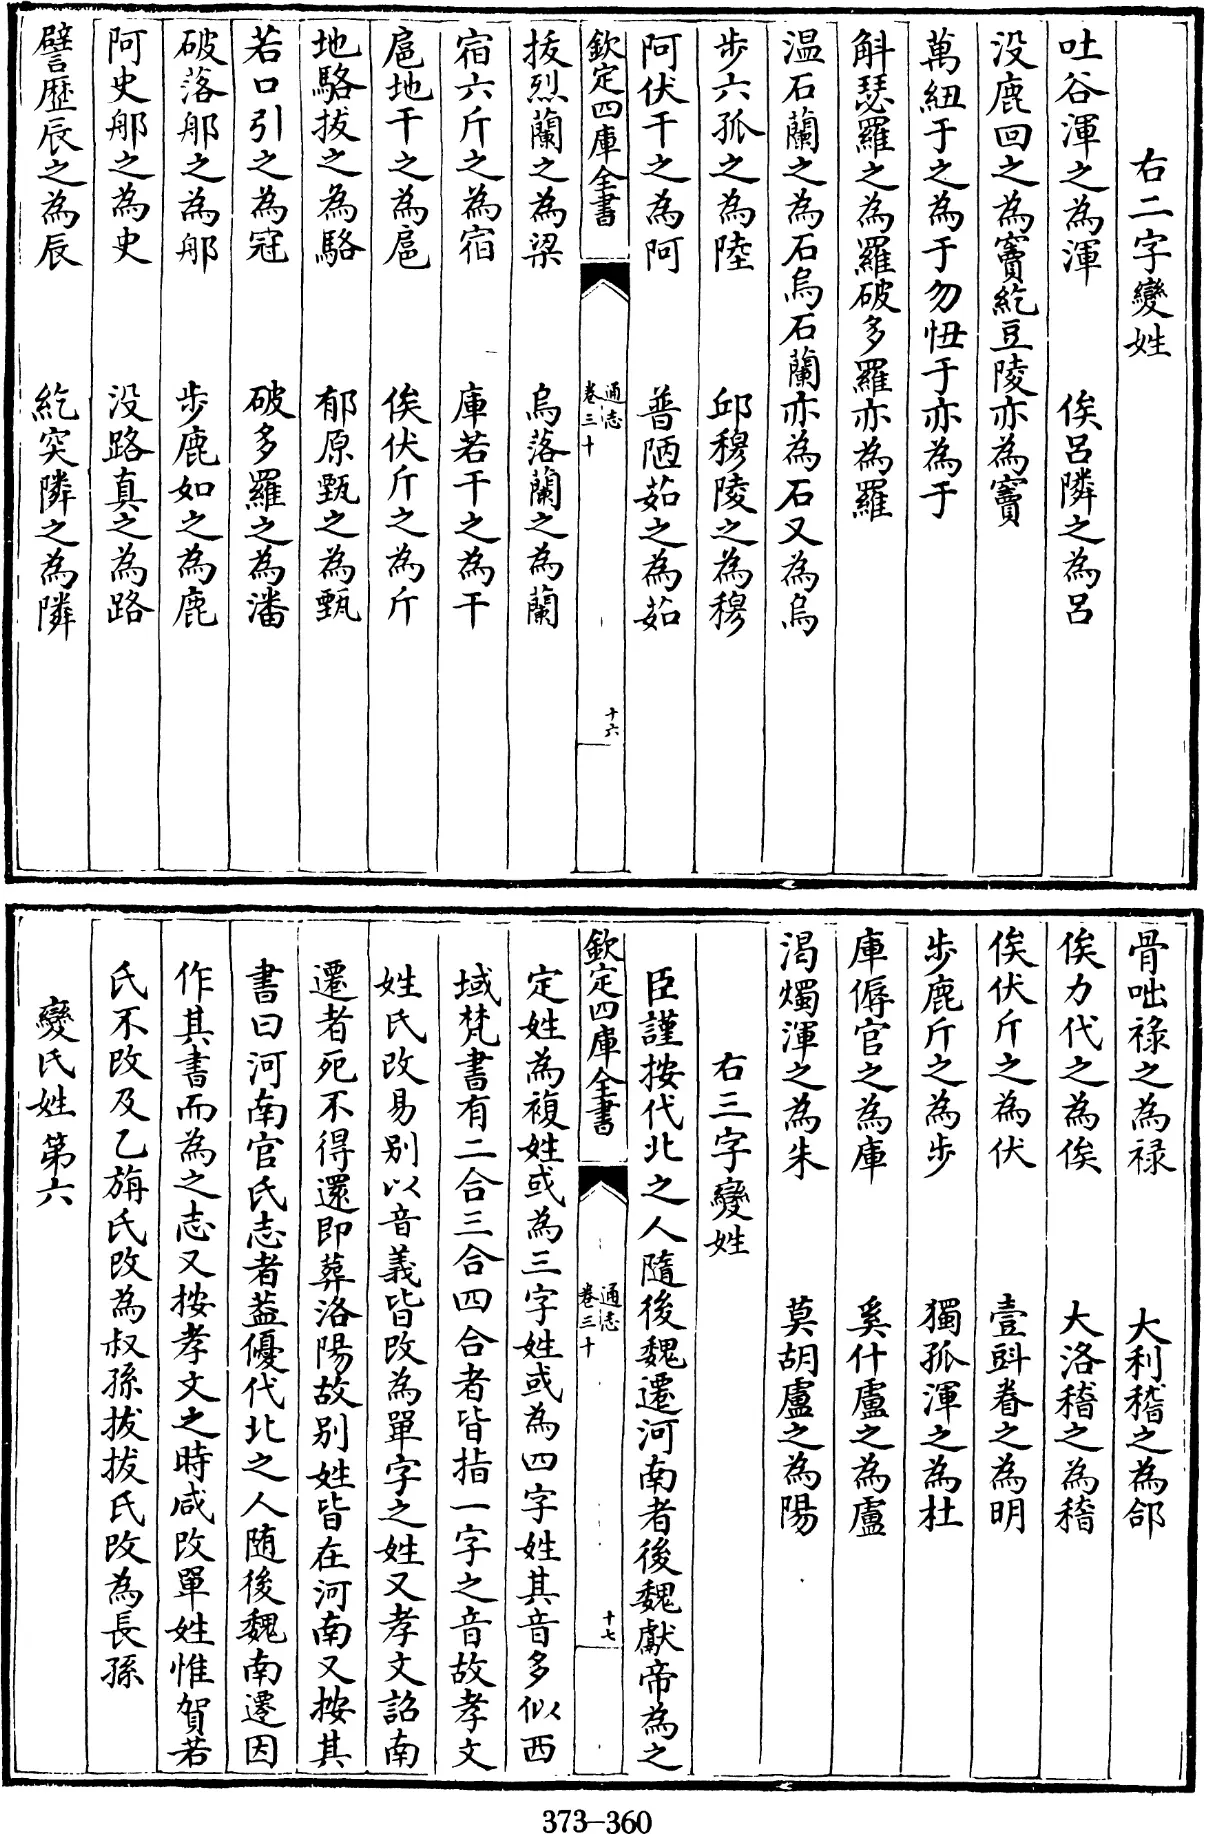 右二字變姓
吐谷渾之為渾　俟呂隣之為呂
没鹿回之為竇紇豆陵亦為竇
萬紐于之為于勿忸于亦為于
斛瑟羅之為羅破多羅亦為羅
温石蘭之為石烏石蘭亦為石又為烏
步六孤之為陸　邱穆陵之為穆
阿伏干之為阿　普陋茹之為茹
欽定四庫全書　通志卷三十　十六
拔烈蘭之為梁　烏落蘭之為蘭
宿六斤之為宿　庫若干之為干
扈地干之為扈　俟伏斤之為斤
地駱拔之為駱　郁原甄之為甄
若口引之為冦　破多羅之為潘
破落郍之為郍　步鹿如之為鹿
阿史郍之為史　没路真之為路
譬歴辰之為辰　紇突隣之為隣
骨咄禄之為禄　大利稽之為郃
俟力代之為俟　大洛稽之為稽
俟伏斤之為伏　壹㪷眷之為明
步鹿斤之為步　獨孤渾之為杜
庫傉官之為庫　奚什盧之為盧
渴燭渾之為朱　莫胡盧之為陽
右三字變姓
臣謹按代北之人隨後魏遷河南者後魏獻帝為之
欽定四庫全書　通志卷三十　十七
定姓為複姓或為三字姓或為四字姓其音多似西
域梵書有二合三合四合者皆指一字之音故孝文
姓氏改易别以音義皆改為單字之姓又孝文詔南
遷者死不得還即葬洛陽故别姓皆在河南又按其
書曰河南官氏志者葢優代北之人随後魏南遷因
作其書而為之志又按孝文之時咸改單姓惟賀若
氏不改及乙旃氏改為叔孫拔拔氏改為長孫
變氏姓第六
373-360